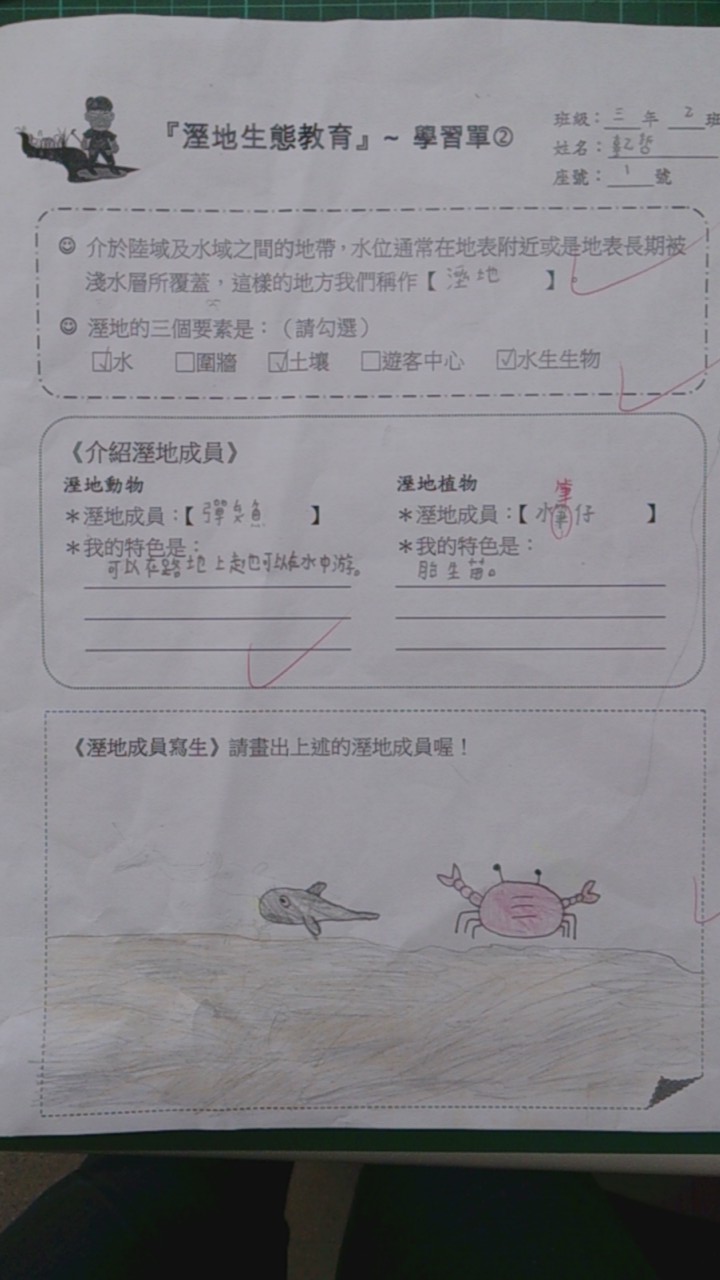 『溼地生態教育』~ 學習單②
班級：三年 2班
姓名：
座號：1號
☺ 介於陸域及水域之間的地帶，水位通常在地表附近或是地表長期被
淺水層所覆蓋，這樣的地方我們稱作【溼地】。
☺ 溼地的三個要素是：（請勾選）
☑水 □圍牆 ☑土壤 □遊客中心 ☑水生生物
《介紹溼地成員》
溼地動物
＊溼地成員：【彈塗魚】
＊我的特色是：
可以在路地上走也可以在水中游。
溼地植物
筆
＊溼地成員：【水筆仔】
＊我的特色是：
胎生苗。
《溼地成員寫生》請畫出上述的溼地成員喔！